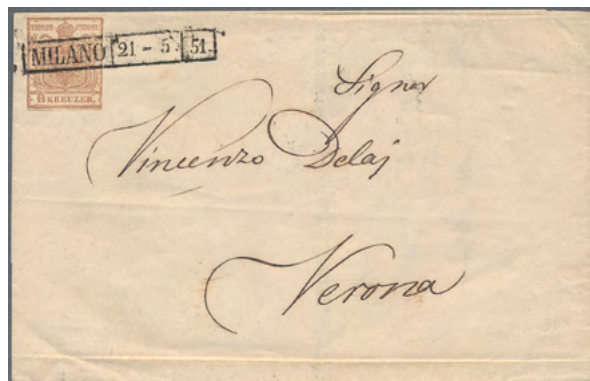 MILANO 21 - 5 51
6 KREUZER.
Signor
Vincenzo Delaj
Verona